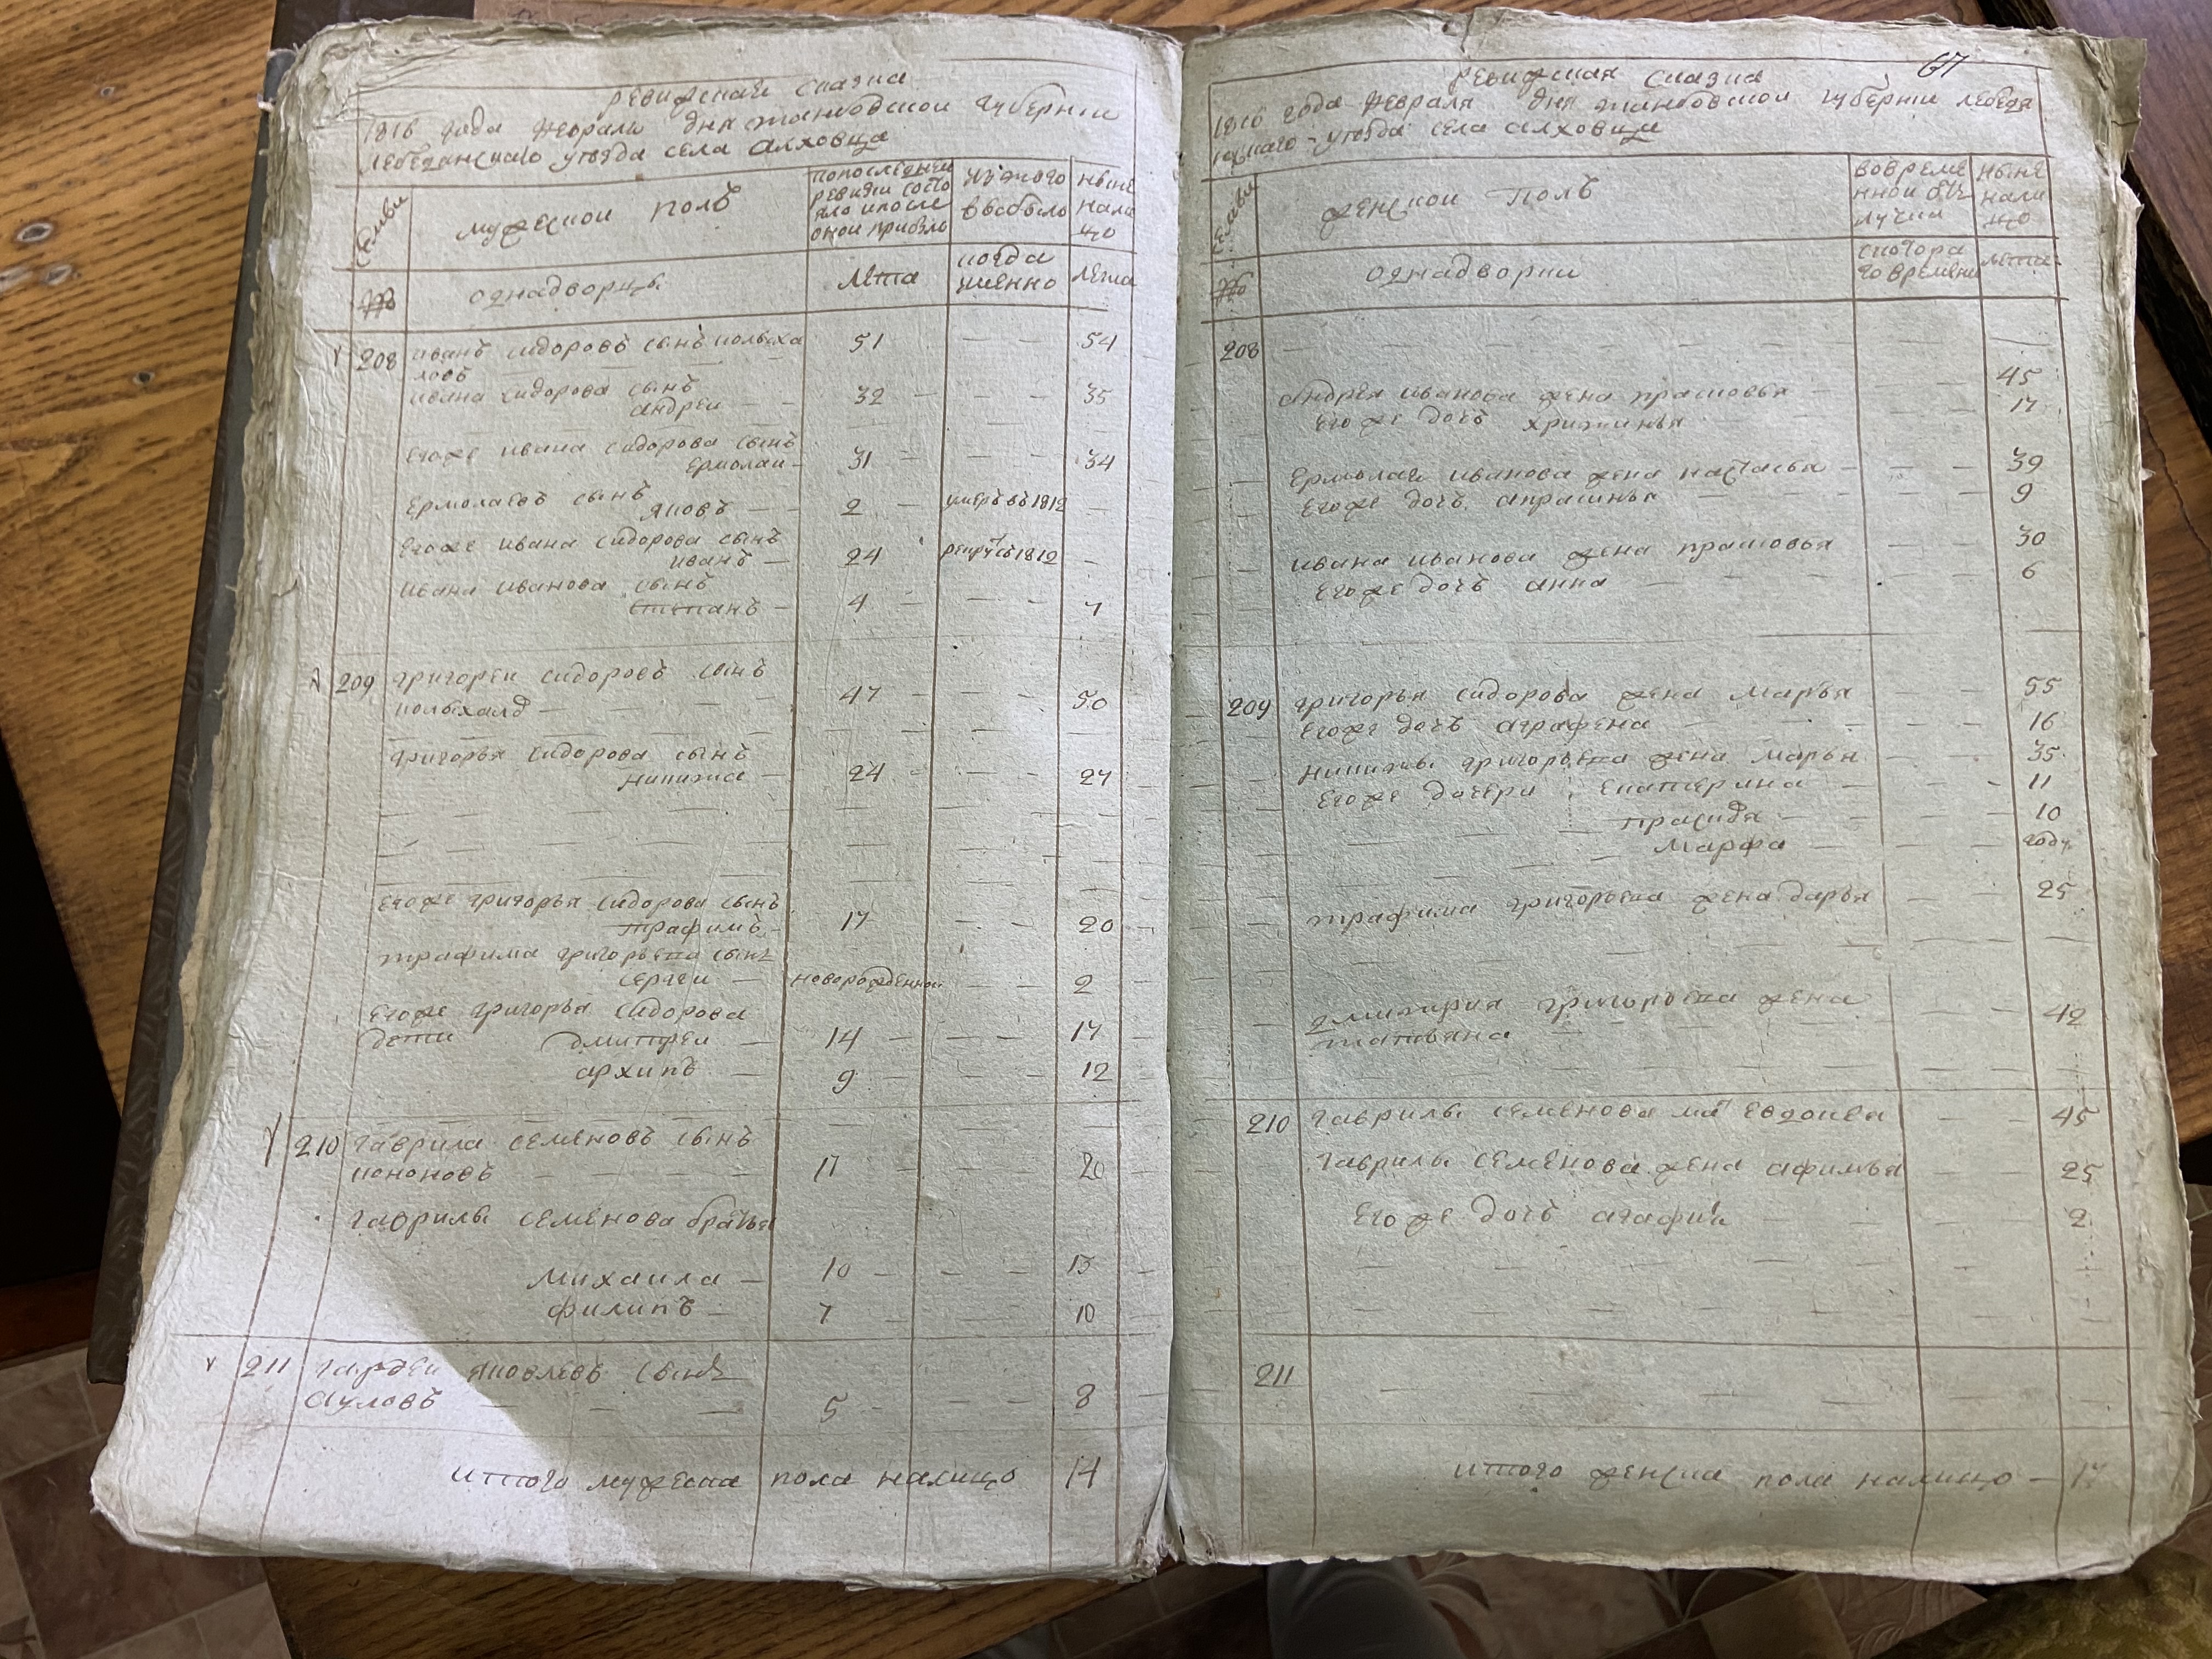 ревижская сказка
1816 года февраля дня танбовской губернии
лебедянскаго уезда села Алховца
Семьи
мужеской полъ
попоследней
ревизии состо
яло ипосле
оной прибыло
изтого
выбыло
ныне
нали
цо
№
однадворцы
лета
когда
именно
лета
208 иванъ сидоровъ сынъ полыха 51 — — 54
ловъ
ивана сидорова сынъ
андреи — 32 — — — 35
Егоже ивана сидорова сынъ
Ермолаи — 31 — — — 34
Ермолаевъ сынъ
яковъ — 2 — умеръ въ 1812 —
Егоже ивана сидорова сынъ
иванъ — 24 рекрутъ 1812 —
ивана иванова сынъ
степанъ — 4 — — — 7
209 григореи сидоровъ сынъ
полыхалд — 47 — — — 50
григорья сидорова сынъ
никита — 24 — — — 27
Егоже григорья сидорова сынъ
трафимъ — 17 — — 20
трафима григорьева сынъ
Сергеи — новорожденной — — 2
Егоже григорья сидорова
дети дмитреи — 14 — — — 17
архипъ — 9 — — — 12
210 гаврила семеновъ сынъ
кононовъ — — 17 — — — 20
гаврилы семенова братья
михаила — 10 — — — 13
филипъ — 7 — — — 10
211 гардеи яковлевъ сынъ
Ауловъ — — — 5 — — — 8
итого мужеска пола налицо 14
67
ревижская сказка
1816 года февраля дня танбовской губернии лебедя
нскаго уезда села алховца
Семьи
женской полъ
вовреме
нной отъ
лучки
ныне
нали
цо
№
однадворки
скотора
го времени
лета
208 — — — — — —
Андрея иванова жена прасковья — — — 45
Егоже дочь христинья — — — 17
Ермолая иванова жена настасья — — — 39
Егоже дочь апрасинья — — — 9
ивана иванова жена прасковья — — 30
Егоже дочь анна — — — 6
209 григорья сидорова жена марья — — 55
Егоже дочь аграфена — — — 16
никиты григорьева жена марья — — 35
Егоже дочери Екатерина — — — 11
прасидя — — — 10
Марфа — — — году
трафима григорьева жена дарья — — 25
дмитрия григорьева жена
татьяна — — — 42
210 гаврилы семенова мать евдокея — — 45
гаврилы семенова жена афимья — — 25
Егоже дочь агафия — — — 2
211 — — — — —
итого женска пола налицо — 17